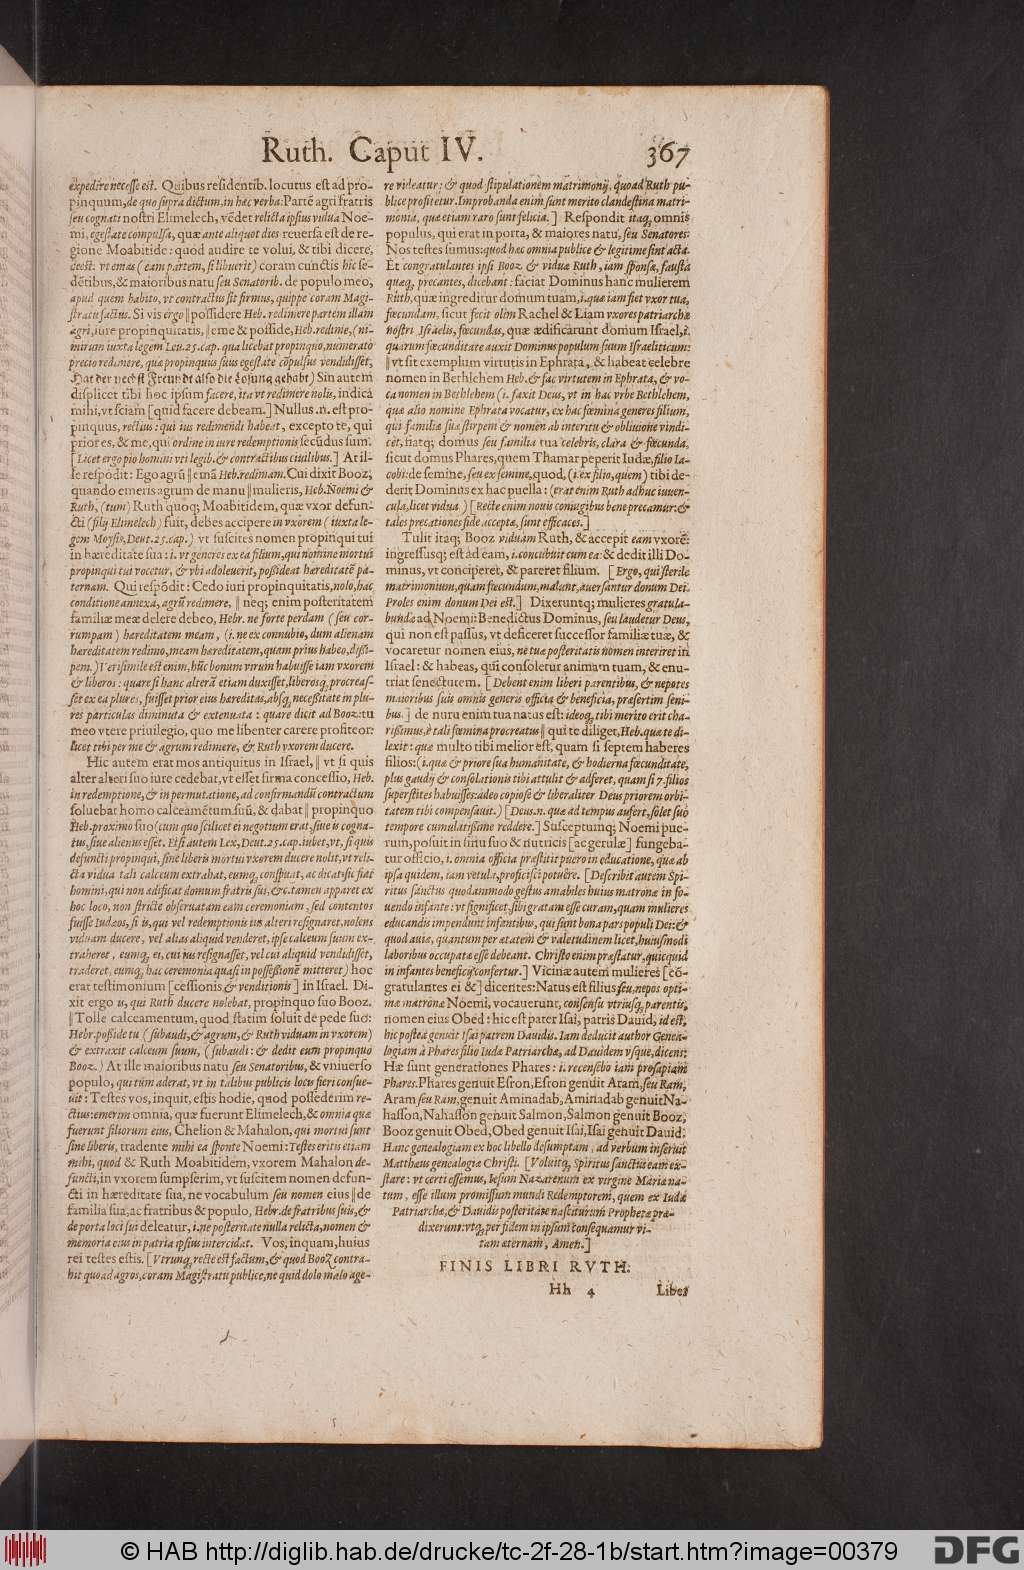 Ruth. Caput IV. 367
expedire necesse est. Quibus residentib. locutus est ad pro-
pinquum, de quo supra dictum, in hæc verba: Partẽ agri fratris
seu cognati nostri Elimelech, vẽdet relicta ipsius vidua Noe-
mi, egestate compulsa, quæ ante aliquot dies reuersa est de re-
gione Moabitide: quod audire te volui, & tibi dicere,
deest: vt emas (eam partem, si libuerit) coram cunctis hic se-
dẽtibus, & maioribus natu seu Senatorib. de populo meo,
apud quem habito, vt contractus sit firmus, quippe coram Magi-
stratu factus. Si vis ergo ‖ possidere Heb. redimere partem illam
agri, iure propinquitatis, ‖ eme & posside, Heb. redime, (ni-
mirum iuxta legem Leu. 25. cap. qua licebat propinquo, numerato
precio redimere, quæ propinquus suus egestate cõpulsus vendidisset,
Hat der nechst Freundt also die Losung gehabt) Sin autem
displicet tibi hoc ipsum facere, ita vt redimere nolis, indica
mihi, vt sciam [quid facere debeam.] Nullus .n. est pro-
pinquus, rectius: qui ius redimendi habeat, excepto te, qui
prior es, & me, qui ordine in iure redemptionis secũdus sum.
[Licet ergo pio homini vti legib. & contractibus ciuilibus.] At il-
le respõdit: Ego agrũ ‖ emã Heb. redimam. Cui dixit Booz,
quando emeris agrum de manu ‖ mulieris, Heb. Noemi &
Ruth, (tum) Ruth quoq; Moabitidem, quæ vxor defun-
cti (filij Elimelech) fuit, debes accipere in vxorem (iuxta le-
gem Moysis, Deut. 25. cap.) vt suscites nomen propinqui tui
in hæreditate sua: i. vt generes ex ea filium, qui nomine mortui
propinqui tui vocetur, & vbi adoleuerit, possideat hæreditatẽ pa-
ternam. Qui respõdit: Cedo iuri propinquitatis, nolo, hac
conditione annexa, agrũ redimere, ‖ neq; enim posteritatem
familiæ meæ delere debeo, Hebr. ne forte perdam (seu cor-
rumpam) hæreditatem meam, (i. ne ex connubio, dum alienam
hæreditatem redimo, meam hæreditatem, quam prius habeo, dissi-
pem.) Verisimile est enim, hũc bonum virum habuisse iam vxorem
& liberos: quare si hanc alterã etiam duxisset, liberosq; procreas-
set ex ea plures, fuisset prior eius hæreditas, absq; necessitate in plu-
res particulas diminuta & extenuata: quare dicit ad Booz: tu
meo vtere priuilegio, quo me libenter carere profiteor:
licet tibi per me & agrum redimere, & Ruth vxorem ducere.
Hic autem erat mos antiquitus in Israel, ‖ vt si quis
alter alteri suo iure cedebat, vt esset firma concessio, Heb.
in redemptione, & in permutatione, ad confirmandũ contractum
soluebat homo calceamẽtum suũ, & dabat ‖ propinquo
Heb. proximo suo (cum quo scilicet ei negotium erat, siue is cogna-
tus, siue alienus esset. Etsi autem Lex, Deut. 25. cap. iubet, vt, si quis
defuncti propinqui, sine liberis mortui vxorem ducere nolit, vt reli-
cta vidua tali calceum extrahat, eumq; conspuat, ac dicat: sic fiat
homini, qui non ædificat domum fratris sui, &c. tamen apparet ex
hoc loco, non stricte obseruatam eam ceremoniam, sed contentos
fuisse Iudæos, si is, qui vel redemptionis ius alteri resignaret, nolens
viduam ducere, vel alias aliquid venderet, ipse calceum suum ex-
traheret, eumq; ei, cui ius resignasset, vel cui aliquid vendidisset,
traderet, eumq; hac ceremonia quasi in possessionẽ mitteret) hoc
erat testimonium [cessionis & venditionis] in Israel. Di-
xit ergo is, qui Ruth ducere nolebat, propinquo suo Booz.
‖ Tolle calceamentum, quod statim soluit de pede suo:
Hebr. posside tu (subaudi, & agrum, & Ruth viduam in vxorem)
& extraxit calceum suum, (subaudi: & dedit eum propinquo
Booz.) At ille maioribus natu seu Senatoribus, & vniuerso
populo, qui tũm aderat, vt in talibus publicis locus fieri consue-
uit: Testes vos, inquit, estis hodie, quod possederim re-
ctius: emerim omnia, quæ fuerunt Elimelech, & omnia quæ
fuerunt filiorum eius, Chelion & Mahalon, qui mortui sunt
sine liberis, tradente mihi ea sponte Noemi: Testes eritis etiam
mihi, quod & Ruth Moabitidem, vxorem Mahalon de-
functi, in vxorem sumpserim, vt suscitem nomen defun-
cti in hæreditate sua, ne vocabulum seu nomen eius ‖ de
familia sua, ac fratribus & populo, Hebr. de fratribus suis, &
de porta loci sui deleatur, i. ne posteritate nulla relicta, nomen &
memoria eius in patria ipsius intercidat. Vos, inquam, huius
rei testes estis. [Vtrunq; recte est factum, & quod Booz contra-
hit quoad agros, coram Magistratu publice, ne quid dolo malo age-
re videatur: & quod stipulationem matrimonij, quoad Ruth pu-
blice profitetur. Improbanda enim sunt merito clandestina matri-
monia, quæ etiam raro sunt felicia.] Respondit itaq; omnis
populus, qui erat in porta, & maiores natu, seu Senatores:
Nos testes sumus: quod hæc omnia publice & legitime sint acta.
Et congratulantes ipsi Booz & viduæ Ruth, iam sponsæ, fausta
quæq; precantes, dicebant: faciat Dominus hanc mulierem
Ruth, quæ ingreditur domum tuam, i. quæ iam fiet vxor tua,
fœcundam, sicut fecit olim Rachel & Liam vxores patriarchæ
nostri Israelis, fœcundas, quæ ædificarunt domum Israel, i.
quarum fœcunditate auxit Dominus populum suum Israeliticum:
‖ vt sit exemplum virtutis in Ephrata, & habeat celebre
nomen in Bethlehem Heb. & fac virtutem in Ephrata, & vo-
ca nomen in Bethlehem (i. faxit Deus, vt in hac vrbe Bethlehem,
quæ alio nomine Ephrata vocatur, ex hac fœmina generes filium,
qui familiæ suæ stirpem & nomen ab interitu & obliuione vindi-
cet, fiatq; domus seu familia tua celebris, clara & fœcunda,
sicut domus Phares, quem Thamar peperit Iudæ, filio Ia-
cobi: de semine, seu ex semine, quod, (i. ex filio, quem) tibi de-
derit Dominus ex hac puella: (erat enim Ruth adhuc iuuen-
cula, licet vidua.) [Recte enim nouis coniugibus bene precamur: &
tales precationes fide acceptæ, sunt efficaces.]
Tulit itaq; Booz viduam Ruth, & accepit eam vxorẽ:
ingressusq; est ad eam, i. concubuit cum ea: & dedit illi Do-
minus, vt conciperet, & pareret filium. [Ergo, qui sterile
matrimonium, quam fœcundum, malunt, auersantur donum Dei.
Proles enim donum Dei est.] Dixeruntq; mulieres gratula-
bundæ ad Noemi: Benedictus Dominus, seu laudetur Deus,
qui non est passus, vt deficeret successor familiæ tuæ, &
vocaretur nomen eius, ne tuæ posteritatis nomen interiret in
Israel: & habeas, qui consoletur animam tuam, & enu-
triat senectutem. [Debent enim liberi parentibus, & nepotes
maioribus suis omnis generis officia & beneficia, præsertim seni-
bus.] de nuru enim tua natus est: ideoq; tibi merito erit cha-
rissimus, è tali fœmina procreatus ‖ qui te diliget, Heb. quæ te di-
lexit: quæ multo tibi melior est, quam si septem haberes
filios: (i. quæ & priore sua humanitate, & hodierna fœcunditate,
plus gaudij & consolationis tibi attulit & adferet, quam si 7. filios
superstites habuisses: adeo copiose & liberaliter Deus priorem orbi-
tatem tibi compensauit.) [Deus .n. quæ ad tempus aufert, solet suo
tempore cumulatissime reddere.] Susceptumq; Noemi pue-
rum, posuit in sinu suo & nutricis [ac gerulæ] fungeba-
tur officio, i. omnia officia præstitit puero in educatione, quæ ab
ipsa quidem, iam vetula, proficisci potuêre. [Describit autem Spi-
ritus sanctus quodammodo gestus amabiles huius matronæ in fo-
uendo infante: vt significet, sibi gratam esse curam, quam mulieres
educandis impendunt infantibus, qui sunt bona pars populi Dei: &
quod auiæ, quantum per ætatem & valetudinem licet, huiusmodi
laboribus occupatæ esse debeant. Christo enim præstatur, quicquid
in infantes beneficij confertur.] Vicinæ autem mulieres [cõ-
gratulantes ei &] dicentes: Natus est filius seu, nepos opti-
mæ matronæ Noëmi, vocauerunt, consensu vtriusq; parentis,
nomen eius Obed: hic est pater Isai, patris Dauid, id est,
hic postea genuit Isai patrem Dauidis. Iam deducit author Genea-
logiam à Phares filio Iudæ Patriarchæ, ad Dauidem vsque, dicens:
Hæ sunt generationes Phares: i. recensebo iam prosapiam
Phares. Phares genuit Esron, Esron genuit Aram, seu Ram,
Aram seu Ram, genuit Aminadab, Aminadab genuit Na-
hasson, Nahasson genuit Salmon, Salmon genuit Booz,
Booz genuit Obed, Obed genuit Isai, Isai genuit Dauid.
Hanc genealogiam ex hoc libello desumptam, ad verbum inseruit
Matthæus genealogiæ Christi. [Voluitq; Spiritus sanctus eam ex-
stare: vt certi essemus, Iesum Nazarenum ex virgine Maria na-
tum, esse illum promissum mundi Redemptorem, quem ex Iudæ
Patriarchæ, & Dauidis posteritate nasciturum Prophetæ præ-
dixerunt: vtq; per fidem in ipsum consequamur vi-
tam æternam, Amen.]
FINIS LIBRI RVTH.
Hh 4 Liber
© HAB http://diglib.hab.de/drucke/tc-2f-28-1b/start.htm?image=00379
DFG